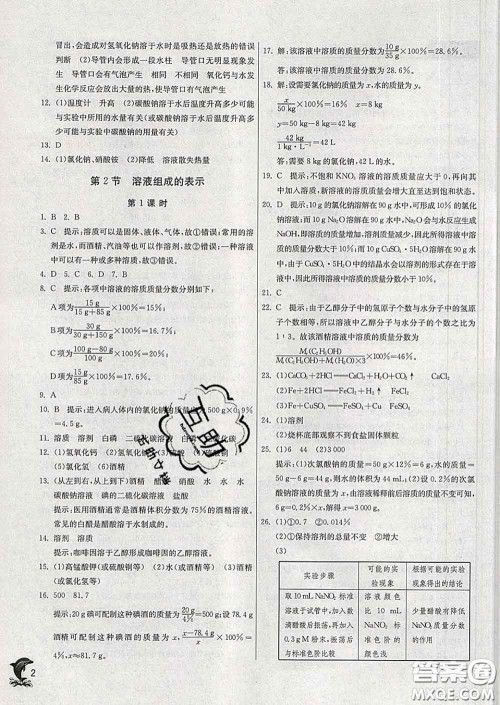 冒出,会造成对氢氧化钠溶于水时是吸热还是放热的错误
判断 (2)导管口会形成一段水柱 导管口无明显现象发
生 导管口有气泡产生 相同 不相同 氧化钙与水
发生化学反应放出大量的热,使导管口有气泡产生
12. (1)温度计 升高 (2)碳酸钠溶于水后温度升高多少可
能与实验中碳酸钠的用量有关(或碳酸钠溶于水后温度
升高多少可能与实验中水的用量有关)
13. D
14. (1)氯化钠、硝酸铵 (2)降低 溶液散失热量
第2节 溶液组成的表示
第1课时
1. B 2. B
3. C 提示:溶质可以是固体、液体、气体,故①错误;水是
溶剂,而酒精、汽油等也可以作溶剂,故②错误;一种溶液
中可以有一种或多种溶质,故③错误。
4. D 5. C 6. B 7. D
8. C 提示:各项中溶液的溶质质量分数分别如下:
A项为15 g/(15 g+85 g)×100%=15%;
B项为30 g/(30 g+150 g)×100%=16.7%;
C项为
D项为
9. A
10. B 提示:进入病人体内的氯化钠的质量为500 g×0.9%
=4.5 g。
11. 溶质 溶剂 白磷 二硫化碳
12. (1)氢氧化钙 (2)
(5)氯化氢
13. (从左到右,从上到下)酒精 醋酸 水 水 水
碳酸钠溶液 碘的二硫化碳溶液 盐酸
提示:医用酒精通常是酒精体积分数为75%的酒精溶液,
常见的白醋是醋酸溶于水制成的。
14. B
提示:咖啡因溶于乙醇形成咖啡因的乙醇溶液。
15. (1)高锰酸钾(或碘等) (2)水(或酒精等) (4)酒精
(或氯化氢等)
16. 500 81.7
提示:20 g碘可配制这种碘酒的质量为20 g/4%=500 g;设
酒精可配制这种碘酒的质量为x,(x-78.4 g)/x×100%=
4%,x≈81.7 g。
17. 解:该溶液中溶质的质量分数为10 g/35 g×100%≈28.6%。
答:该溶液中溶质的质量分数为28.6%。
18. 解:设需要氯化钠的质量为x,水的质量为y。
x/50 kg×100%=16% x=8 kg
y=50 kg-8 kg=42 kg
42 kg/(1 kg/L)=42 L
答:需要8 kg的氯化钠,42 L的水。
19. C 提示:不饱和KNO₃溶液的溶质质量应大于0,再向
其中加入新溶质,新溶液中的溶质质量分数必增大。
20. C 提示:10 g氯化钠溶解在90 g水中,可以得到10%的
氯化钠溶液;而10 g Na₂O溶解在90 g水中,由于Na₂O
会与水反应生成NaOH,即溶质的质量增加,溶剂的质量减少,因此所得溶液中溶质
的质量分数大于10%;而10 g CuSO₄·5H₂O溶解在90 g水
中,由于CuSO₄·5H₂O中的结晶水会以溶剂的形式存在于溶
液中,因此所得溶液中溶质的质量分数小于10%。
21. C
22. C 提示:由于乙醇分子中的氢原子个数与水分子中的氢
原子个数相等,所以溶液中乙醇分子与水分子的个数之比为
1∶3。故酒精溶液的溶质质量分数为
Mᵣ(C₂H₅OH)/(Mᵣ(C₂H₅OH)+Mᵣ(H₂O)×3)×100%=46%。
23. (1)CaCO₃+2HCl══CaCl₂+H₂O+CO₂↑ CaCl₂
(2)Fe+2HCl══FeCl₂+H₂↑ FeCl₂
(3)Fe+CuSO₄══FeSO₄+Cu FeSO₄
24. (1)溶剂
(2)烧杯底部观察不到食盐固体颗粒
25. (1)6 44 (2)3000
提示:(1)次氯酸钠的质量为50 g×12%=6 g,水的质量为
50 g-6 g=44 g,水的体积为44 mL。(2)设0.2%的次氯
酸钠溶液的质量为x,由溶液稀释前后溶质的质量不变可知,
6 g=0.2%×x,x=3000 g。
26. (1)①0.7 ②0.014
(2)保持溶剂的总量不变 ②大
(3)
实验步骤
可能的实验现象
根据可能的实验现象得出的结论
取10 mL NaNO₂标准溶液于试管中,加入数滴醋酸后振荡,再加入0.3 g M粉末,振荡后与标准色阶比较
溶液颜色比10 mL NaNO₂标准色阶的颜色浅
少量醋酸有降低NaNO₂质量分数的作用
2
互助
答案圈
MXQE.COM